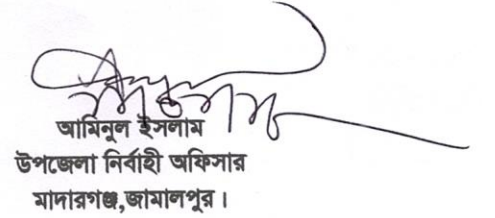 আমিনুল ইসলাম
উপজেলা নির্বাহী অফিসার
মাদারগঞ্জ,জামালপুর।